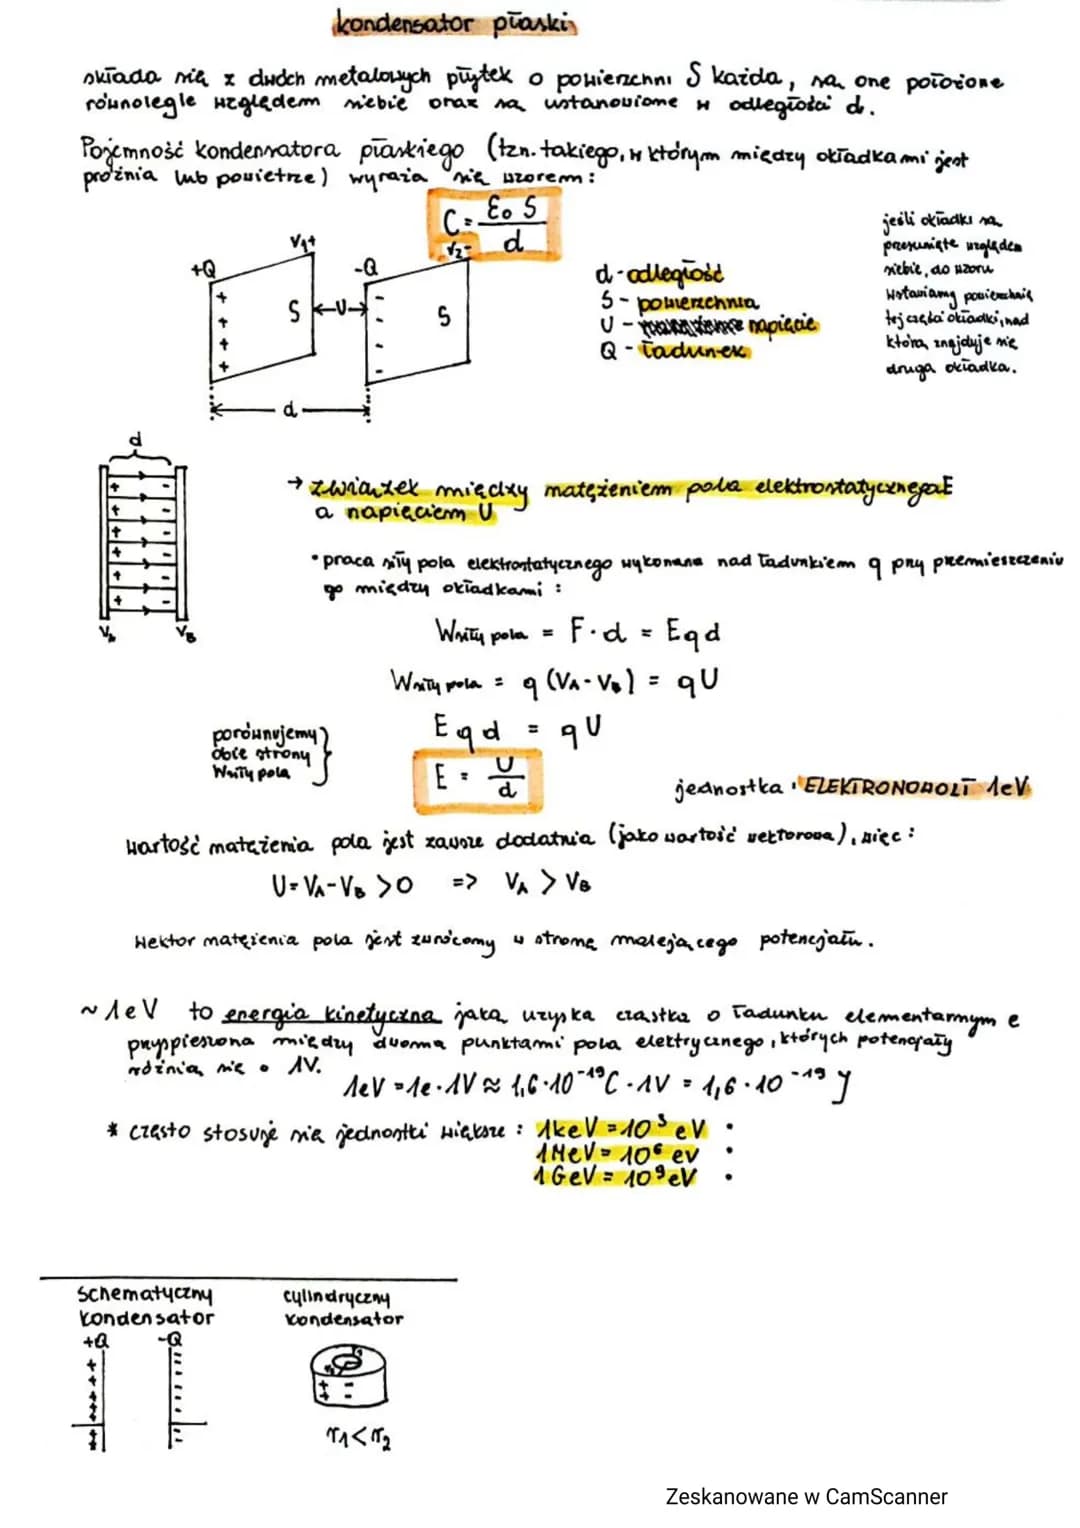 kondensator płaski
składa się z dwóch metalowych płytek o powierzchni S każda, są one położone
równolegle względem siebie oraz są ustanowione w odległości d.
Pojemność kondensatora płaskiego (tzn. takiego, w którym między okładkami jest
próżnia lub powietrze) wyraża się wzorem:
C = ε₀ S / d
V₁+
V₂-
+Q
-Q
+
+
+
+
S
U
-
-
-
-
S
d
d - odległość
S - powierzchnia
U - napięcie
Q - ładunek
jeśli okładki są
przesunięte względem
siebie, do wzoru
wstawiamy powierzchnię
tej części okładki, nad
którą znajduje się
druga okładka.
d
+ -
+ -
+ -
+ -
+ -
+ -
VA VB
→ związek między natężeniem pola elektrostatycznego E
a napięciem U
• praca siły pola elektrostatycznego wykonana nad ładunkiem q przy przemieszczeniu
go między okładkami :
Wsiły pola = F·d = Eqd
Wsiły pola = q (VA - VB) = qU
Eqd = qU
porównujemy
obie strony
Wsiły pola
E = U / d
jednostka : ELEKTRONOWOLT 1eV
wartość natężenia pola jest zawsze dodatnia (jako wartość wektorowa), więc :
U = VA - VB > 0 => VA > VB
Wektor natężenia pola jest zwrócony w stronę malejącego potencjału.
~ 1eV to energia kinetyczna jaką uzyska cząstka o ładunku elementarnym e
przyspieszona między dwoma punktami pola elektrycznego, których potencjały
różnią się o 1V.
1eV = 1e · 1V ≈ 1,6 · 10⁻¹⁹ C · 1V = 1,6 · 10⁻¹⁹ J
* często stosuje się jednostki większe : 1keV = 10³ eV
1MeV = 10⁶ eV
1GeV = 10⁹ eV
schematyczny
kondensator
+Q -Q
cylindryczny
kondensator
r₁ < r₂
Zeskanowane w CamScanner